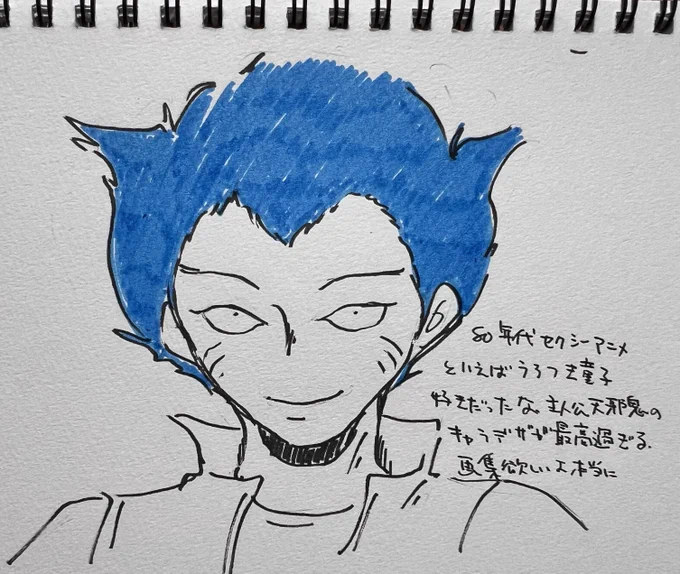 80年代セクシーアニメ
といえばうろつき童子
好きだったな。主人公天邪鬼の
キャラデザが最高過ぎる.
画集欲しいよ本当に